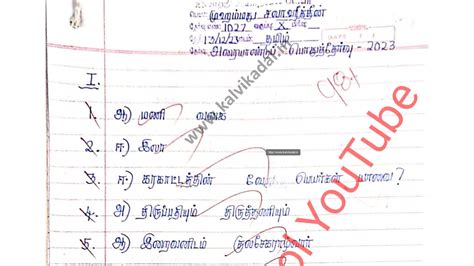 முஹம்மது சலாஹூத்தீன்
1027 X
13/12/23 தமிழ்
அரையாண்டுப் பொதுத்தேர்வு - 2023
98/
I.
1. ஆ) மணி வகை
2. ஈ) இலா
3. ஈ. கரகாட்டத்தின் வேறு பெயர்கள் யாவை?
4. அ) திருப்பதியும் திருத்தணியும்
5. ஆ) இறைவனிடம் குலசேகராழ்வார்
www.kalvikadal.in
YouTube